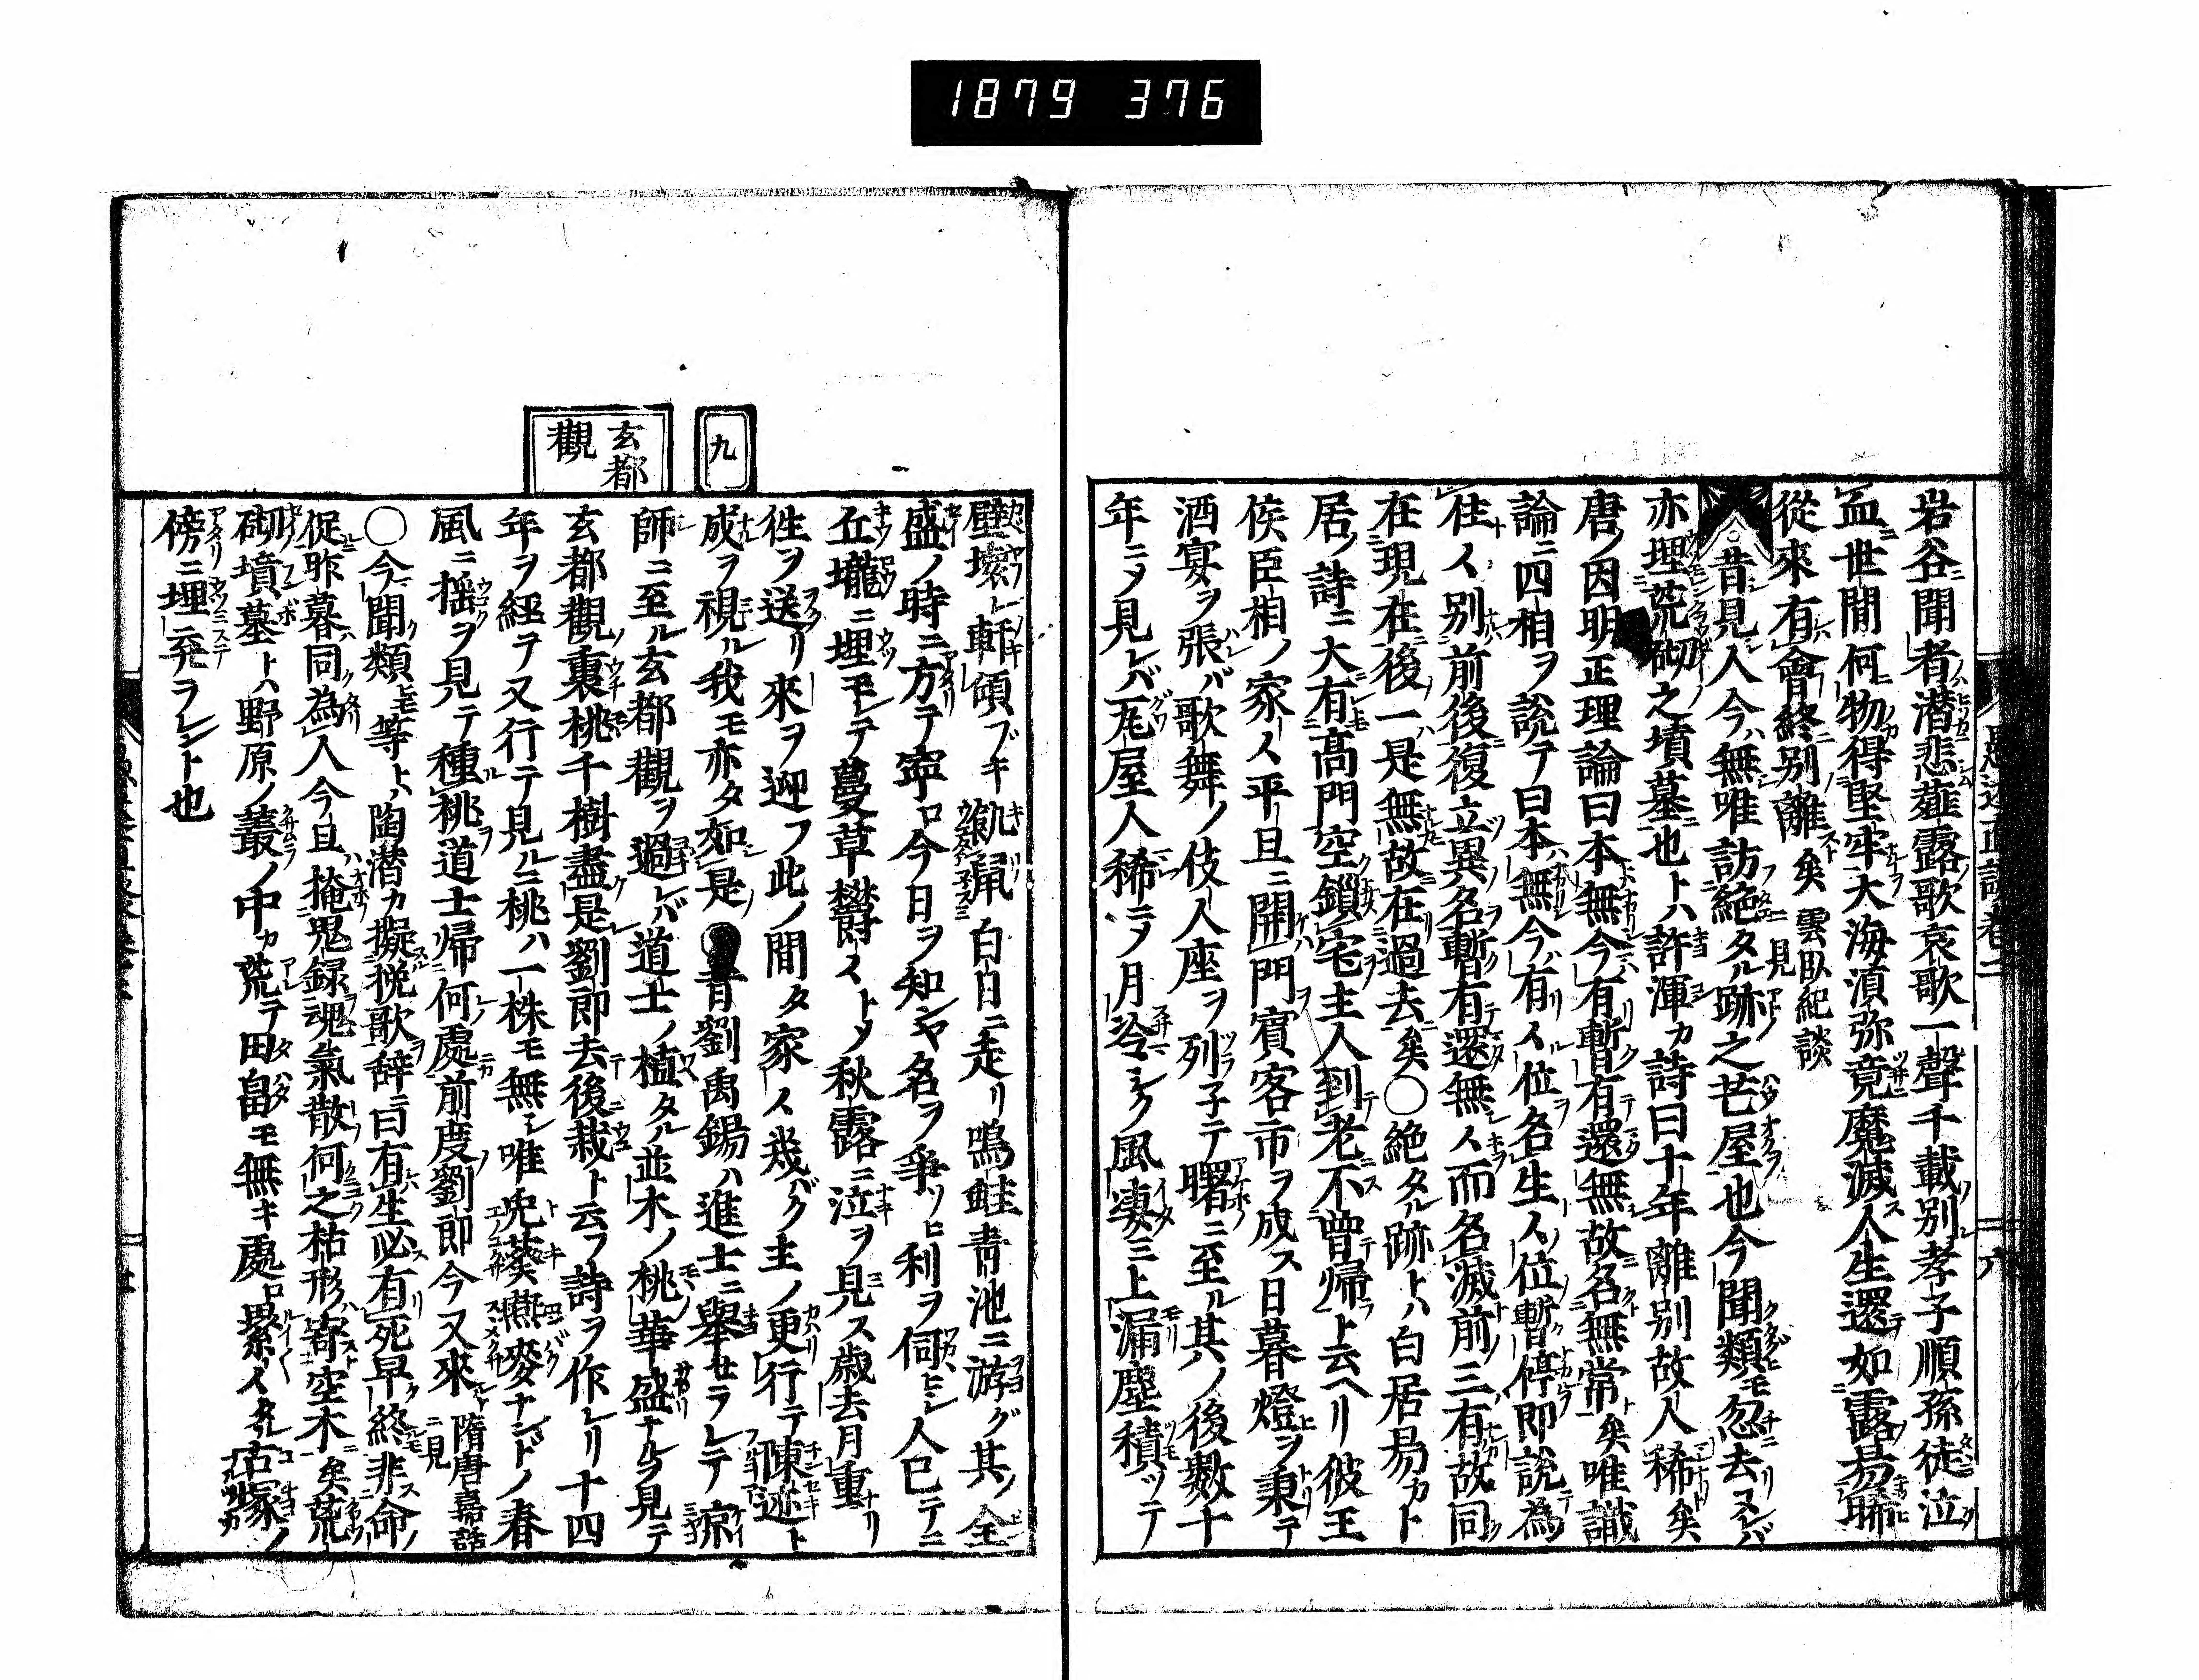 1879 376
岩谷聞者潜悲薤露歌哀歌一聲千載別孝子順孫徒泣
孟世間何物得堅牢大海滇弥竟魔滅人生還如露易晞
從來有會終別離矣 雲臥紀談ニ見
昔見シ人今ハ無唯訪絶タル跡之芒屋也今聞類モ忽去ヌレバ
亦埋荒砌之墳墓也トハ許渾カ詩曰十年離別故人稀矣
唐ノ因明正理論曰本無今有暫有還無故名無常矣唯識
論ニ四相ヲ説テ曰本無今有ル位名生ノ位暫停即説為
住別前後復立異名暫有還無而名滅前三有故同
在現在後一是無故在過去矣〇絶タル跡トハ白居易カト
居ノ詩ニ大有高門空鎖宅主人到老不曾歸ト云ヘリ彼王
侯臣相ノ家平旦ニ開門賓客市ヲ成ス日暮燈ヲ秉テ
酒宴ヲ張バ歌舞ノ伎人座ヲ列子テ曙ニ至ル其ノ後數十
年ニメ見レバ瓦屋人稀ニメ月冷シク風凄シ上漏塵積ツテ
九
玄都觀
壁壊レ軒傾ブキ 白日ニ走リ鳴蛙青池ニ游グ其ノ全
盛ノ時ニ方テ寧ロ今日ヲ知ンヤ名ヲ爭ソヒ利ヲ伺ヒシ人已テニ
丘壠ニ埋モレテ蔓草欝ストメ秋露ニ泣ヲ見ス歳去月重リ
徃ヲ送リ來ヲ迎フ此ノ間タ家ス幾バク主ノ更行テ陳迹ト
成ヲ視ル我モ亦タ如是 昔劉禹錫ハ進士ニ舉セラレテ京
師ニ至ル玄都觀ヲ過レバ道士ノ植タル並木ノ桃華盛ナルヲ見テ
玄都觀裏桃千樹盡是劉郎去後栽ト云フ詩ヲ作レリ十四
年ヲ經テ又行テ見ルニ桃ハ一株モ無シ唯兎葵燕麥ナンドノ春
風ニ揺ヲ見テ種桃道士帰何處前度劉郎今又來 隋唐嘉話ニ見
〇今聞類モ等トハ陶潜カ擬挽歌辞ニ曰有生必有死早終非命
促昨暮同為人今旦掩鬼録魂氣散何之枯形寄空木矣荒
砌墳墓トハ野原ノ叢ノ中カ荒テ田畠モ無キ處ロ累々タル古塚ノ
傍ニ埋ミ棄ラレント也